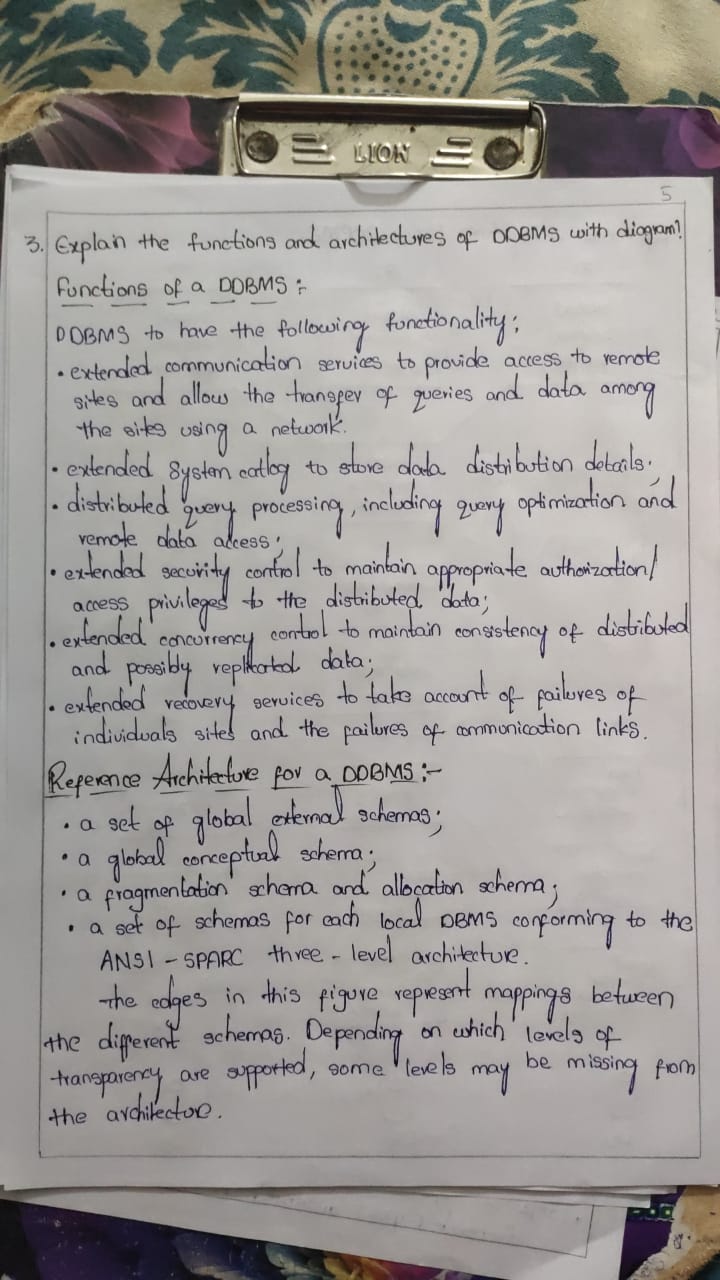 LION
5
3. Explain the functions and architectures of DDBMS with diagram?
Functions of a DDBMS :-
DDBMS to have the following functionality;
• extended communication services to provide access to remote
sites and allow the transfer of queries and data among
the sites using a network.
• extended System catlog to store data distribution details;
• distributed query processing, including query optimization and
remote data access;
• extended security control to maintain appropriate authorization/
access privileges to the distributed data;
• extended concurrency control to maintain consistency of distributed
and possibly replicated data;
• extended recovery services to take account of failures of
individuals sites and the failures of communication links.
Reference Architecture for a DDBMS :-
• a set of global external schemas;
• a global conceptual schema;
• a fragmentation schema and allocation schema;
• a set of schemas for each local DBMS conforming to the
ANSI - SPARC three - level architecture.
The edges in this figure represent mappings between
the different schemas. Depending on which levels of
transparency are supported, some levels may be missing from
the architectoe.